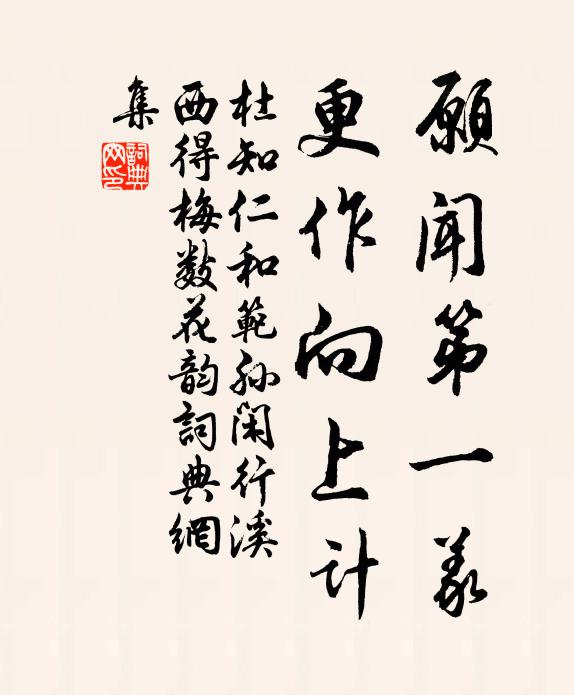 願聞第一義
更作向上计
杜知仁和範孙闲行溪
西得梅数花韵詞典網
集
詞典
网印